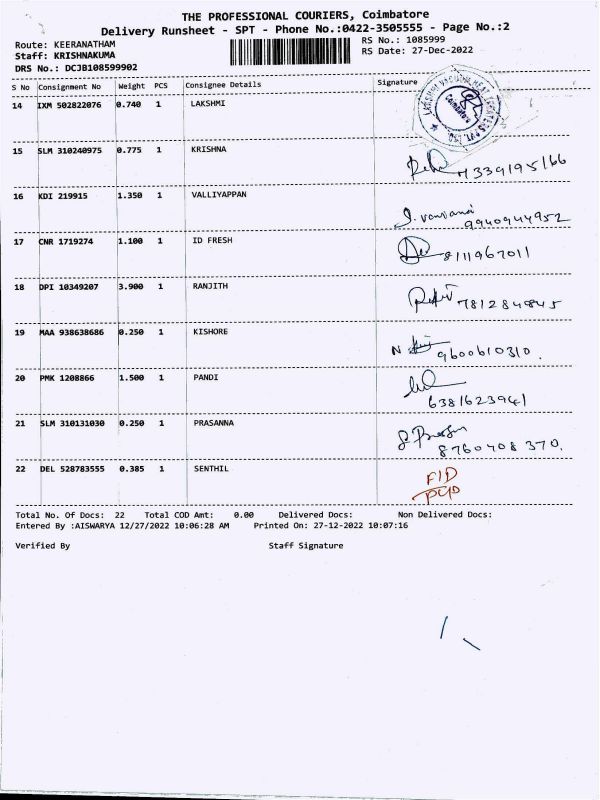 THE PROFESSIONAL COURIERS, Coimbatore
Delivery Runsheet - SPT - Phone No.:0422-3505555 - Page No.:2
Route: KEERANATHAM
RS No.: 1085999
Staff: KRISHNAKUMA
RS Date: 27-Dec-2022
DRS No.: DCJB108599902
S No Consignment No Weight PCS Consignee Details Signature
14 IXM 502822076 0.740 1 LAKSHMI
Coimbatore
15 SLM 310240975 0.775 1 KRISHNA
7339195166
16 KDI 219915 1.350 1 VALLIYAPPAN
9940944952
17 CNR 1719274 1.100 1 ID FRESH
8111967011
18 DPI 10349207 3.900 1 RANJITH
781284845
19 MAA 938638686 0.250 1 KISHORE
9600610310.
20 PMK 1208866 1.500 1 PANDI
6381623941
21 SLM 310131030 0.250 1 PRASANNA
8760408370.
22 DEL 528783555 0.385 1 SENTHIL
Total No. Of Docs: 22 Total COD Amt: 0.00 Delivered Docs: Non Delivered Docs:
Entered By :AISWARYA 12/27/2022 10:06:28 AM Printed On: 27-12-2022 10:07:16
Verified By Staff Signature